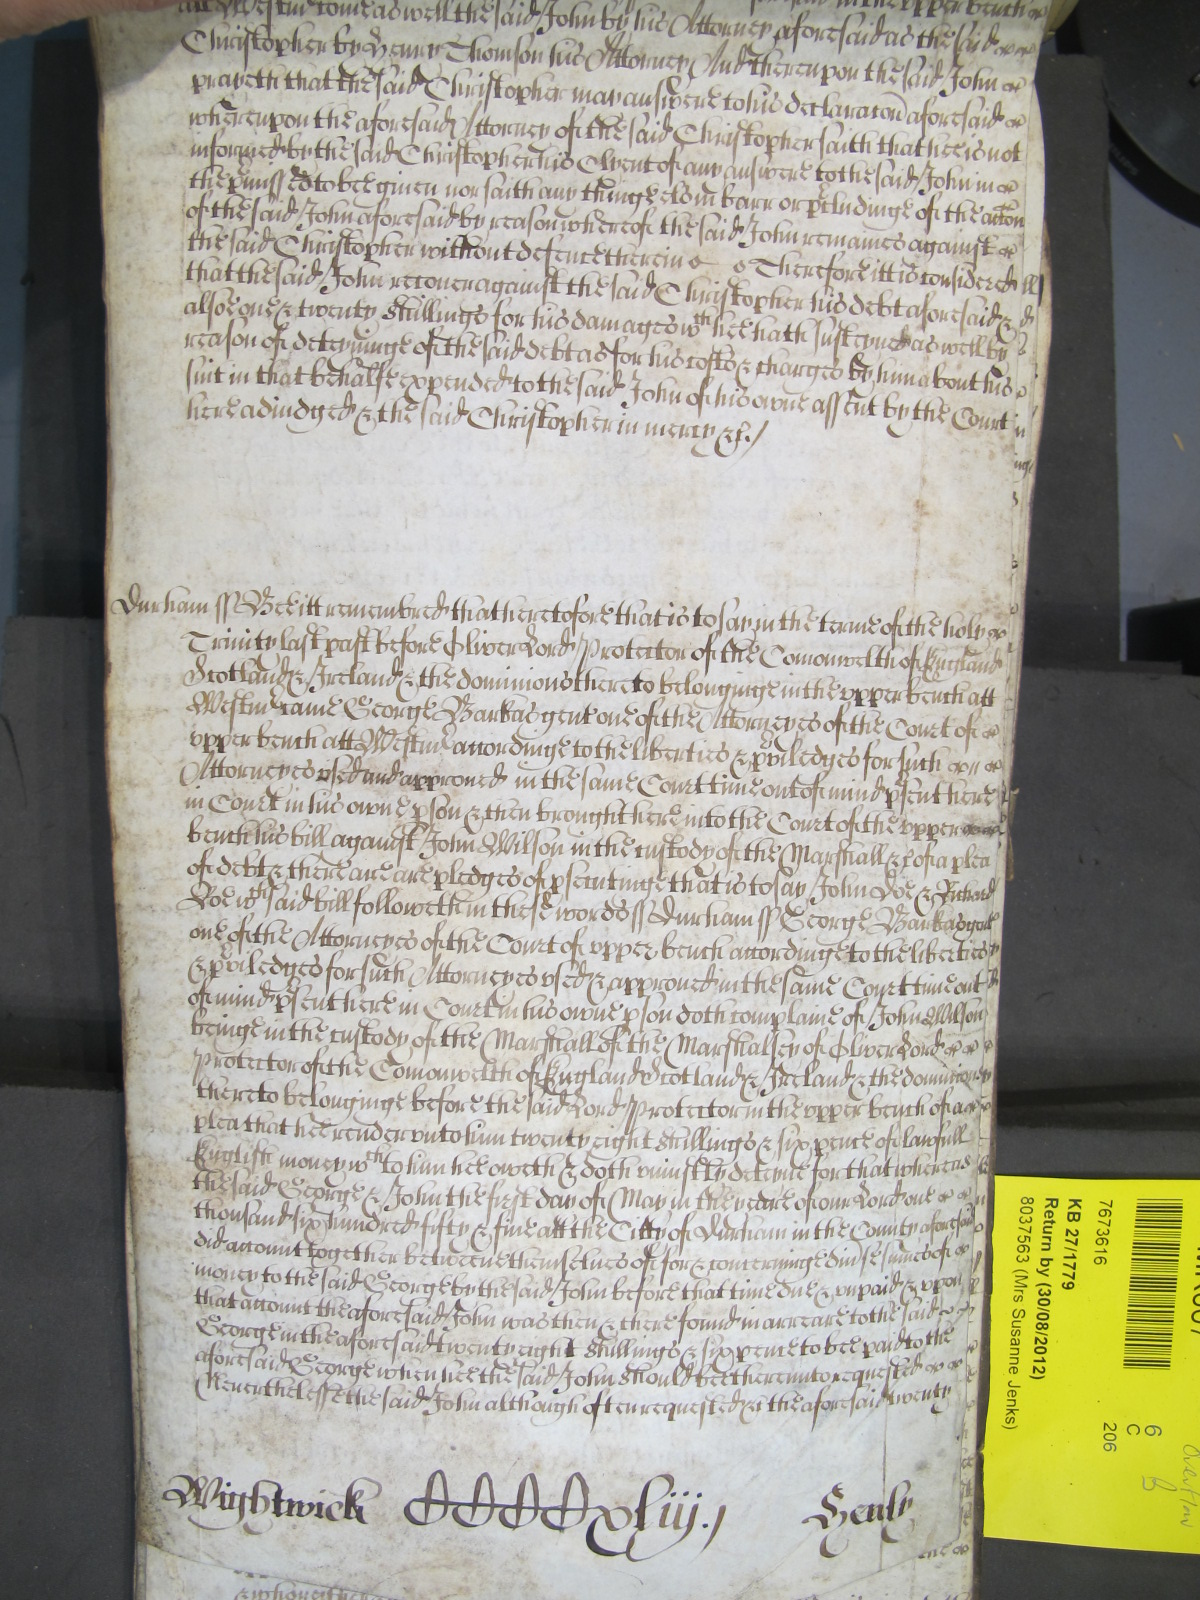 att Westm come as well the said John by his Attorney aforesaid as the said
Christopher by Henry Thomson his Attorney And thereupon the said John
prayeth that the said Christopher may answere to his declaracon aforesaid
whereupon the aforesaid Attorney of the said Christopher saith that hee is not
informed by the said Christopher his Clyent of any answere to the said John in
the pmisses to bee given nor saith any thinge els in barr or pcludinge of the accon
of the said John aforesaid by reason whereof the said John remaines against
the said Christopher without defence therein Therefore itt is considered
that the said John recover against the said Christopher his debt aforesaid &
alsoe one & twenty shillings for his damages wch hee hath susteyned as well by
reason of deteyninge of the said debt as for his costs & charges by him about his
suit in that behalfe expended to the said John of his owne assent by the Court
here adiudged & the said Christopher in mercy &c./
Durham ss Bee itt remembred that heretofore that is to say in the terme of the holy
Trinity last past before Oliver Lord Protector of the Comonwelth of England
Scotland & Ireland & the dominions thereto belonginge in the upper bench att
Westm came George Barkas gent one of the Attorneyes of the Court of
upper bench att Westm accordinge to the liberties & priviledges for such
Attorneyes used and approved in the same Court time out of mind psent here
in Court in his owne pson & then brought here into the Court of the upper
bench his bill against John Wilson in the custody of the Marshall &c of a plea
of debt & there are are pledges of psecutinge that is to say John Doe & Richard
Roe wch said bill followeth in these words ss Durham ss George Barkas gent
one of the Attorneyes of the Court of upper bench accordinge to the liberties
& priviledges for such Attorneyes used & approved in the same Court time out
of mind psent here in Court in his owne pson doth complaine of John Wilson
beinge in the custody of the Marshall of the Marshalsey of Oliver Lord
Protector of the Comonwelth of England Scotland & Ireland & the dominions
thereto belonginge before the said Lord Protector in the upper bench of a
plea that hee render unto him twenty eight shillings & six pence of lawfull
English money wch to him hee oweth & doth uniustly deteyne for that whereas
the said George & John the first day of May in the yeare of our Lord one
thousand six hundred fifty & five att the Citty of Durham in the County aforesaid
did account together betweene themselves of for & concerninge divse sumes of
money to the said George by the said John before that time due & unpaid & upon
that account the aforesaid John was then & there found in arreare to the said
George in the aforesaid twenty eight shillings & six pence to bee paid to the
aforesaid George when hee the said John should bee thereunto requested
Neverthelesse the said John although often requested &c the aforesaid twenty
Wightwick CCCCxliij./ Henly
7673616
KB 27/1779
Return by (30/08/2012)
8037563 (Mrs Susanne Jenks)
6
C
206
Overflow
B